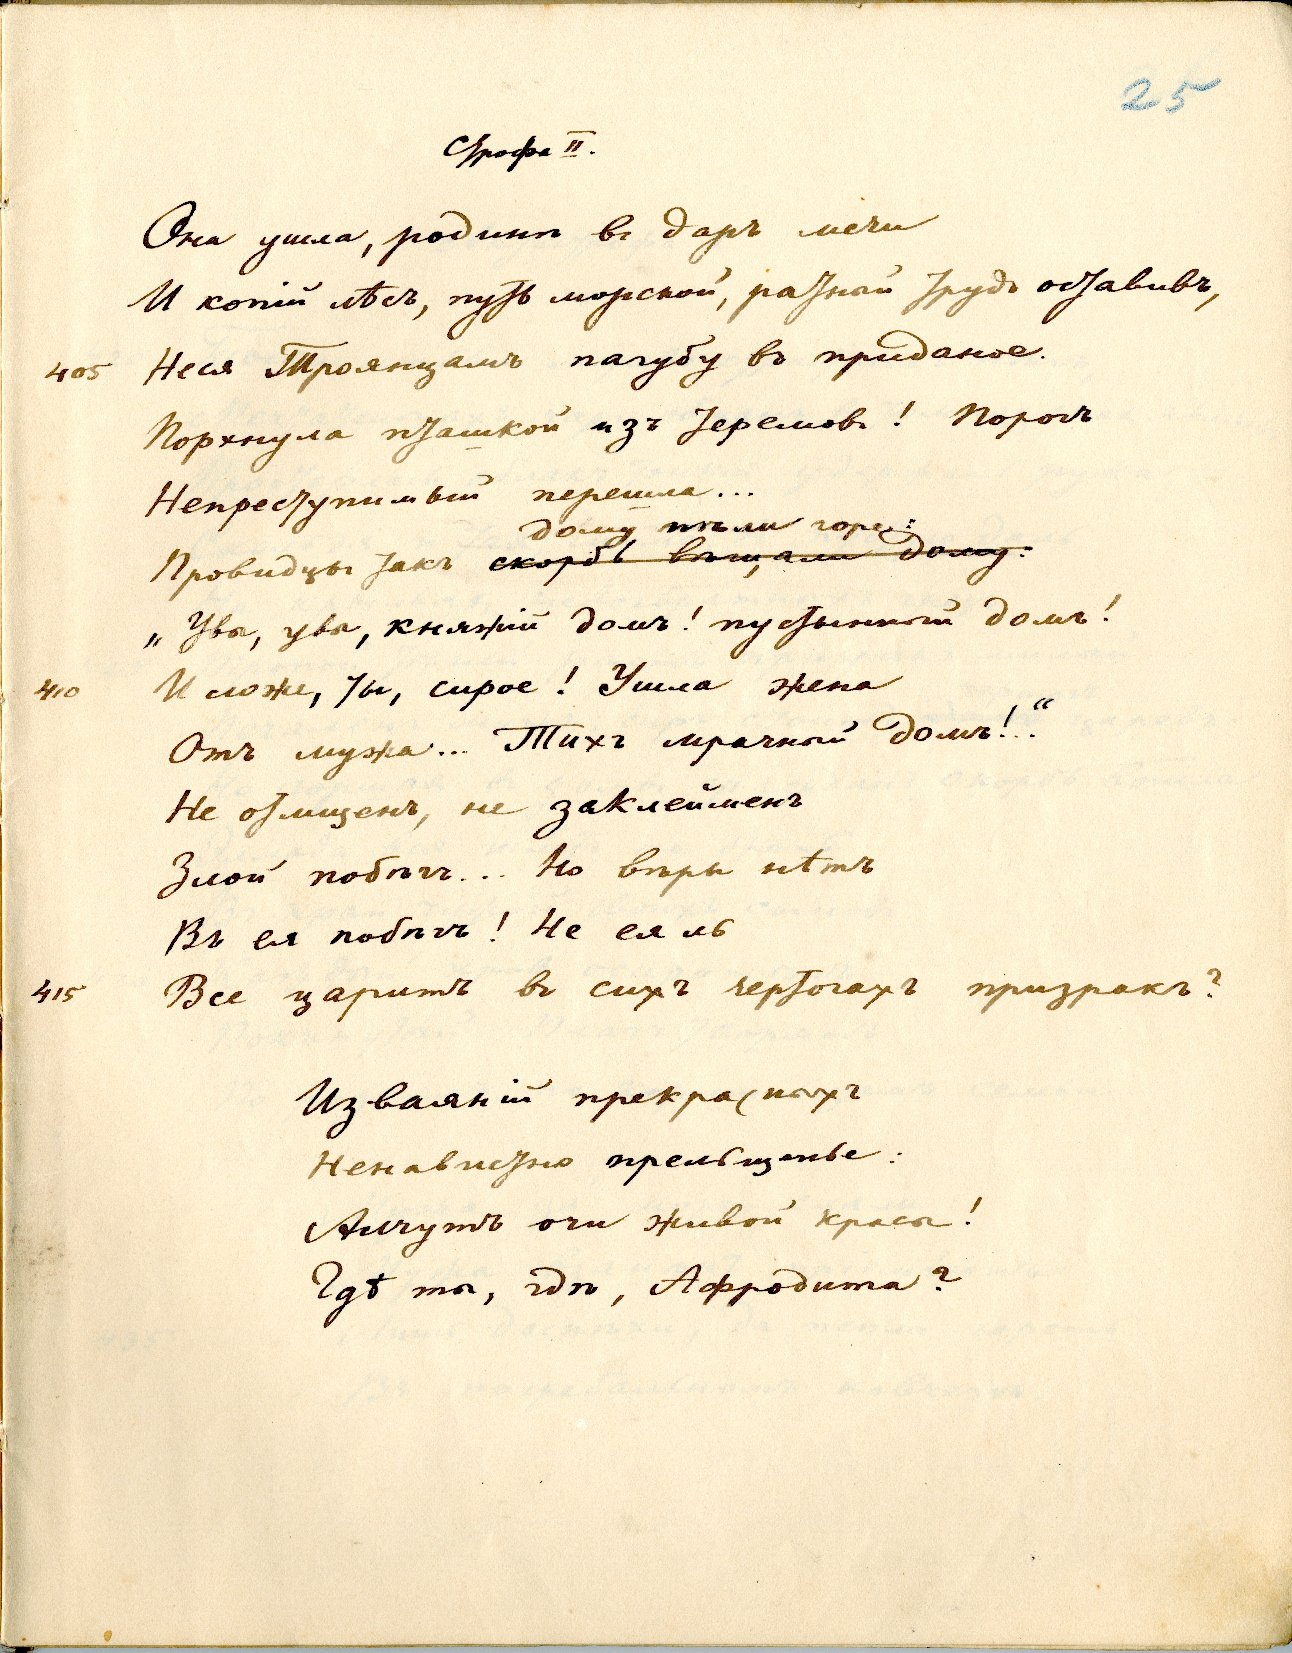 25
Строфа II.
Она ушла, родинѣ въ даръ мечи
И копій лѣсъ, путь морской, ратный трудъ оставивъ,
405 Неся Троянцамъ пагубу въ приданое.
Порхнула пташкой изъ теремовъ! Порогъ
Непреступимый перешла...
дому пѣли горе:
Провидцы такъ скорбь вѣщали дому:
„Увы, увы, княжій домъ! пустынный домъ!
410 И ложе, ты, сирое! Ушла жена
Отъ мужа... Тихъ мрачный домъ!..“
Не отмщенъ, не заклейменъ
Злой побѣгъ... Но вѣры нѣтъ
Въ ея побѣгъ! Не ея ль
415 Все царитъ въ сихъ чертогахъ призракъ?
Изваяній прекрасныхъ
Ненавистно прельщенье:
Алчутъ очи живой красы!
Гдѣ ты, гдѣ, Афродита?